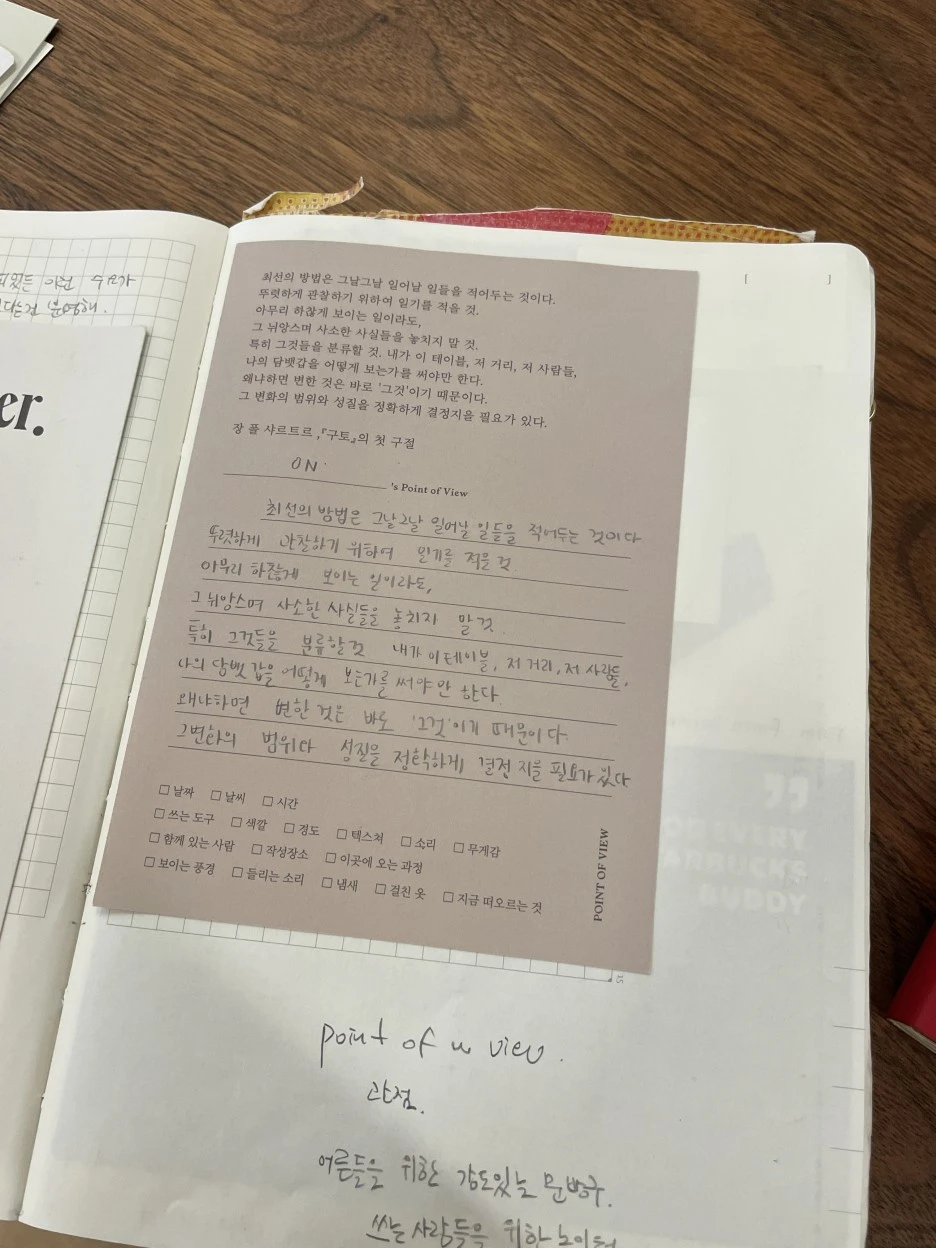 피있든 이런 수요가
다는건 분명해.
er.
[ ]
최선의 방법은 그날그날 일어날 일들을 적어두는 것이다.
뚜렷하게 관찰하기 위하여 일기를 적을 것.
아무리 하찮게 보이는 일이라도,
그 뉘앙스며 사소한 사실들을 놓치지 말 것.
특히 그것들을 분류할 것. 내가 이 테이블, 저 거리, 저 사람들,
나의 담뱃갑을 어떻게 보는가를 써야만 한다.
왜냐하면 변한 것은 바로 '그것'이기 때문이다.
그 변화의 범위와 성질을 정확하게 결정지을 필요가 있다.
장 폴 샤르트르,『구토』의 첫 구절
ON.
's Point of View
최선의 방법은 그날그날 일어날 일들을 적어두는 것이다
뚜렷하게 관찰하기 위하여 일기를 적을 것
아무리 하찮게 보이는 일이라도,
그 뉘앙스며 사소한 사실들을 놓치지 말 것.
특히 그것들을 분류할 것 내가 이 테이블, 저 거리, 저 사람들,
나의 담뱃갑을 어떻게 보는가를 써야만 한다.
왜냐하면 변한 것은 바로 '그것'이기 때문이다.
그 변화의 범위와 성질을 정확하게 결정지을 필요가 있다
□ 날짜 □ 날씨 □ 시간
□ 쓰는 도구 □ 색깔 □ 경도 □ 텍스처 □ 소리 □ 무게감
□ 함께 있는 사람 □ 작성장소 □ 이곳에 오는 과정
□ 보이는 풍경 □ 들리는 소리 □ 냄새 □ 걸친 옷 □ 지금 떠오르는 것
POINT OF VIEW
point of view.
관점.
어른들을 위한 감도있는 문방구.
쓰는 사람들을 위한